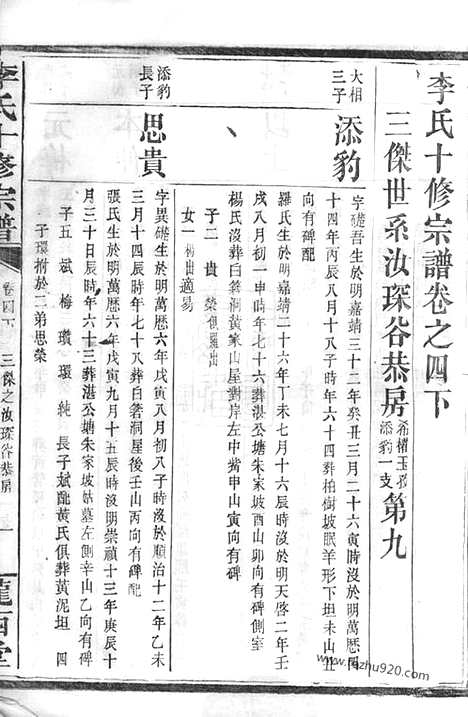 李氏十修宗譜卷之四下
三傑世系汝琛谷恭房 希權玉 添豹一支 第九
大相
三子
添豹
字礎吾生於明嘉靖三十二年癸丑三月二十六寅時沒於明萬歷四
十四年丙辰八月十八子時年六十四葬柏樹坡眠羊形下坦未山丑
向有碑配
羅氏生於明嘉靖二十六年丁未七月十六辰時沒於明天啓二年壬
戌八月初一申時年七十六葬湛公塘朱家坡酉山卯向有碑側室
楊氏沒葬臼箬洞黃家山屋對岸左中嘴申山寅向有碑
子二 貴 榮 俱羅出
女一 楊出 適易
添豹
長子
思貴
字異磋生於明萬歷六年戊寅八月初八子時沒於順治十二年乙未
三月十四辰時年七十八葬臼箬洞屋後壬山丙向有碑配
張氏生於明萬歷六年戊寅九月十五辰時沒明崇禎十三年庚辰十
月三十日辰時年六十三葬湛公塘朱家坡姑墓左側辛山乙向有碑
子五 斌 梅 瓚 環 純 長子斌配黃氏俱葬黃泥坦 四
子環拊於二弟思榮
李氏十修宗譜
卷四下
三傑之汝琛谷恭房
一
龍西堂
www.jiazhu920.com